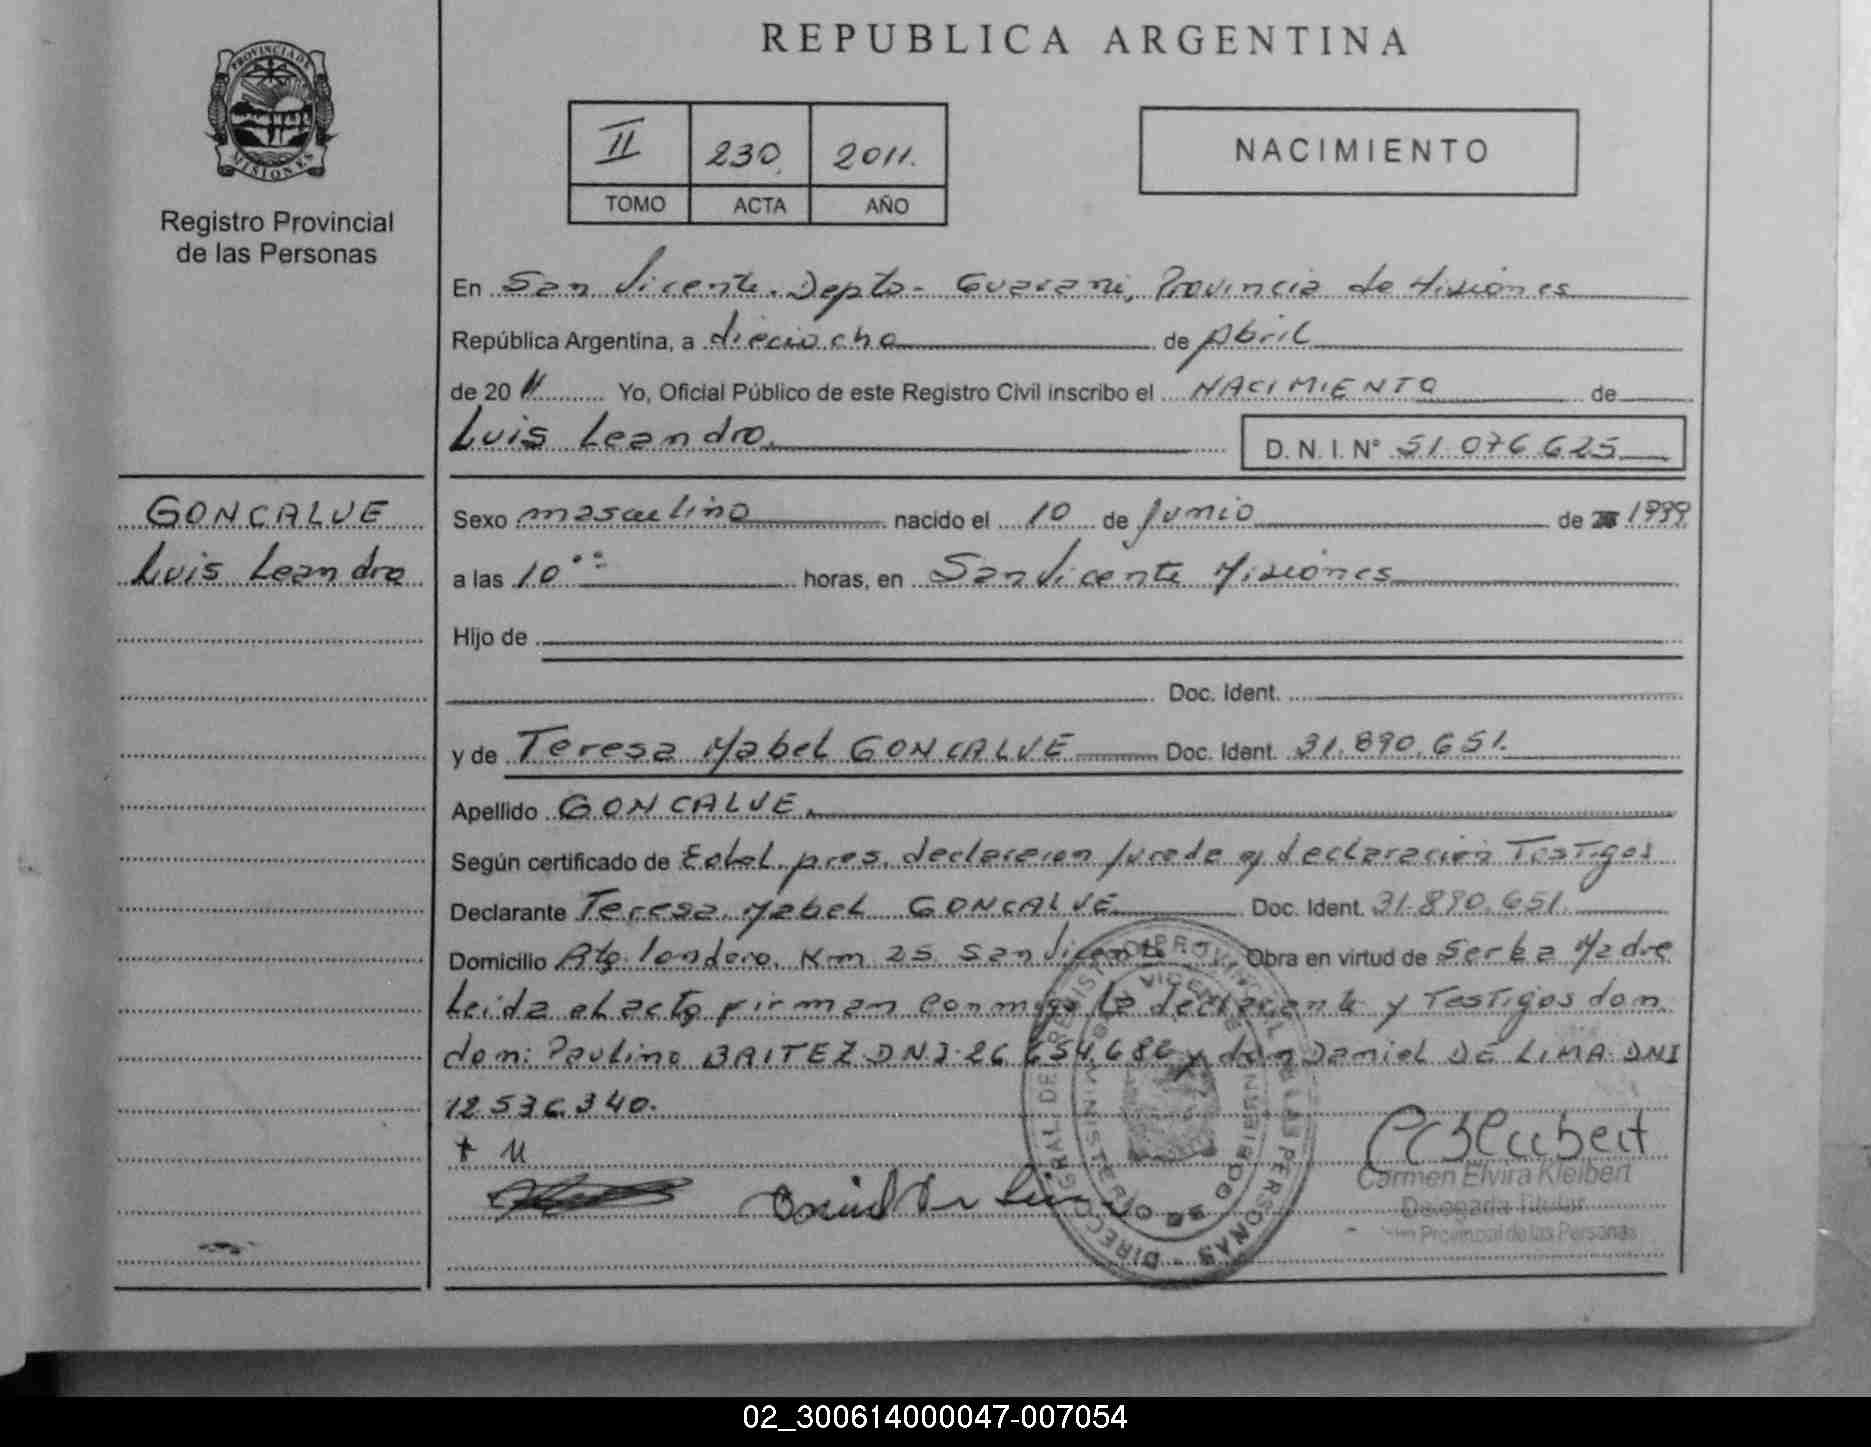 REPUBLICA ARGENTINA
PROVINCIA DE
MISIONES
Registro Provincial
de las Personas
II 230 2011.
TOMO ACTA AÑO
NACIMIENTO
En San Vicente. Depto- Guarani, Provincia de Misiones
República Argentina, a dieciocho de Abril
de 20 11 Yo, Oficial Público de este Registro Civil inscribo el NACIMIENTO de
Luis Leandro. D. N. I. N° 51.076.625
GONCALVE
Luis Leandro
Sexo masculino nacido el 10 de Junio de 1999
a las 10 horas, en San Vicente Misiones
Hijo de
Doc. Ident.
y de Teresa Mabel GONCALVE Doc. Ident. 31.890.651.
Apellido GONCALVE.
Según certificado de pres. declaracion Jurada y declaración Testigos
Declarante Teresa Mabel GONCALVE Doc. Ident. 31.890.651.
Domicilio Km 25 San Vicente Obra en virtud de Ser la Madre
Leida el acta firman conmigo la declarante y Testigos don
don: Paulino BAITEZ DNI 26.654.686 y don Daniel DE LIMA DNI
12.536.340.
+ M
Daniel De Lima
Carmen Elvira Kleibert
Delegada Titular
Provincial de las Personas
DIRECCION GRAL DE REGISTRO PROVINCIAL DE LAS PERSONAS
MINISTERIO DE GOBIERNO
SAN VICENTE
02_300614000047-007054